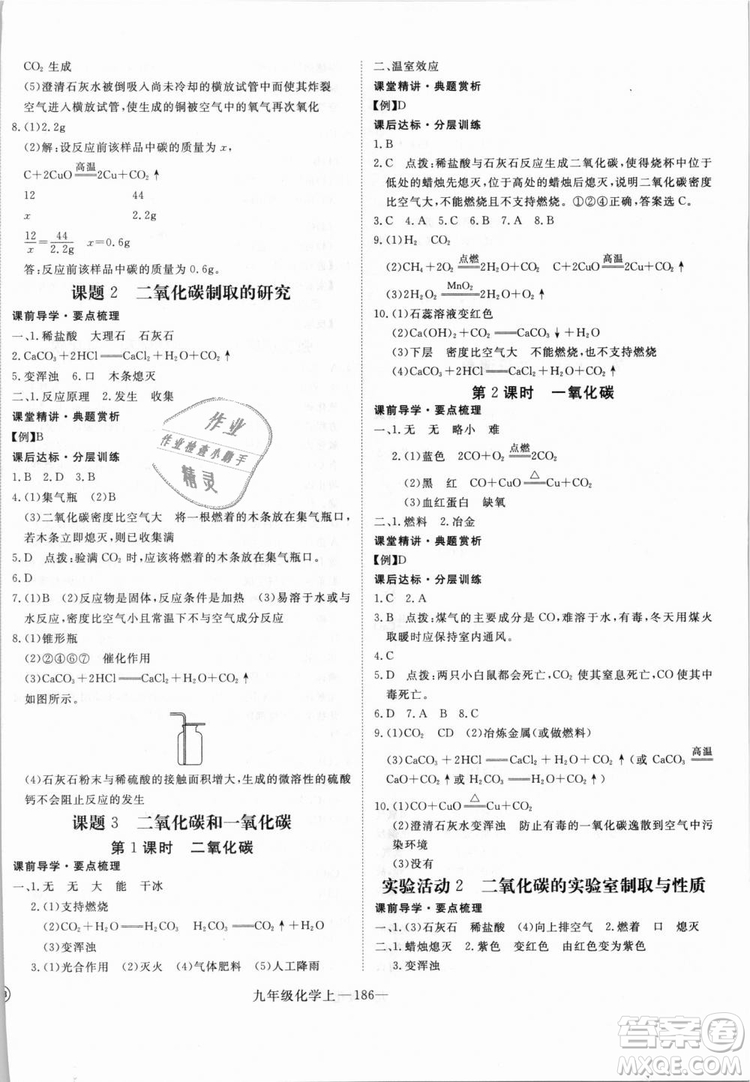 CO₂ 生成
(5)澄清石灰水被倒吸入尚未冷却的横放试管中而使其炸裂
空气进入横放试管,使生成的铜被空气中的氧气再次氧化
8.(1)2.2g
(2)解:设反应前该样品中碳的质量为 x,
高温
C+2CuO═══2Cu+CO₂↑
12 44
x 2.2g
12/x=44/2.2g x=0.6g
答:反应前该样品中碳的质量为 0.6g。
课题 2 二氧化碳制取的研究
课前导学·要点梳理
一、1.稀盐酸 大理石 石灰石
2.CaCO₃+2HCl═══CaCl₂+H₂O+CO₂↑
5.变浑浊 6.口 木条熄灭
二、1.反应原理 2.发生 收集
课堂精讲·典题赏析
【例】B
课后达标·分层训练
1.B 2.D 3.B
4.(1)集气瓶 (2)B
(3)二氧化碳密度比空气大 将一根燃着的木条放在集气瓶口,
若木条立即熄灭,则已收集满
5.D 点拨:验满 CO₂ 时,应将燃着的木条放在集气瓶口。
6.D
7.(2)反应物是固体,反应条件是加热 (3)易溶于水或与
水反应,密度比空气小且常温下不与空气反应
8.(1)锥形瓶
(2)②④⑥⑦ 催化作用
(3)CaCO₃+2HCl═══CaCl₂+H₂O+CO₂↑
如图所示。
(4)石灰石粉末与稀硫酸的接触面积增大,生成的微溶性的硫酸
钙不会阻止反应的发生
课题 3 二氧化碳和一氧化碳
第 1 课时 二氧化碳
课前导学·要点梳理
一、1.无 无 大 能 干冰
2.(1)支持燃烧
(2)CO₂+H₂O═══H₂CO₃ H₂CO₃═══H₂O+CO₂↑
(3)变浑浊
3.(1)光合作用 (2)灭火 (4)气体肥料 (5)人工降雨
二、温室效应
课堂精讲·典题赏析
【例】D
课后达标·分层训练
1.B
2.C 点拨:稀盐酸与石灰石反应生成二氧化碳,使得烧杯中位于
低处的蜡烛先熄灭,高处的蜡烛后熄灭,说明二氧化碳的密度
比空气大,不能燃烧且不支持燃烧。①②④正确,答案选 C。
3.C 4.A 5.A 6.D 7.B 8.B
9.(1)H₂ CO₂
点燃 高温
(2)CH₄+2O₂═══CO₂+2H₂O C+2CuO═══2Cu+CO₂↑
MnO₂
2H₂O₂═══2H₂O+O₂↑
10.(1)石蕊溶液变红色
(2)Ca(OH)₂+CO₂═══CaCO₃↓+H₂O
(3)下层 密度比空气大 不能燃烧,也不支持燃烧
(4)CaCO₃+2HCl═══CaCl₂+H₂O+CO₂↑
第 2 课时 一氧化碳
课前导学·要点梳理
一、1.无 无 略小 难
点燃
2.(1)蓝色 2CO+O₂═══2CO₂
△
(2)黑 红 CO+CuO═══Cu+CO₂
(3)血红蛋白 缺氧
二、1.燃料 2.冶金
课堂精讲·典题赏析
【例】D
课后达标·分层训练
1.C 2.A
3.B 点拨:煤气的主要成分是 CO,一氧化碳难溶于水,有毒,冬天用煤火
取暖时应保持室内通风。
4.C
5.D 点拨:两只小白鼠都会死亡,CO₂ 使其窒息死亡,CO 使其中
毒死亡。
6.D 7.A 8.C
9.(1)CO₂ CD (2)冶炼金属(或做燃料)
高温
(3)CaCO₃+2HCl═══CaCl₂+H₂O+CO₂↑(或 CaCO₃═══
CaO+CO₂↑或 H₂CO₃═══H₂O+CO₂↑)
△
10.(1)CO+CuO═══Cu+CO₂
(2)澄清石灰水变浑浊 防止有毒的一氧化碳逸散到空气中污
染环境
(3)没有
实验活动 2 二氧化碳的实验室制取与性质
课前导学·要点梳理
一、1.(3)石灰石 稀盐酸 (4)向上排空气 (5)燃着 口 熄灭
二、1.蜡烛熄灭 2.紫色 变红色 由红色变紫色
3.(1)浑浊
九年级化学上—186—
作业
作业检查小帮手
精灵
答案圈
MXQE.COM